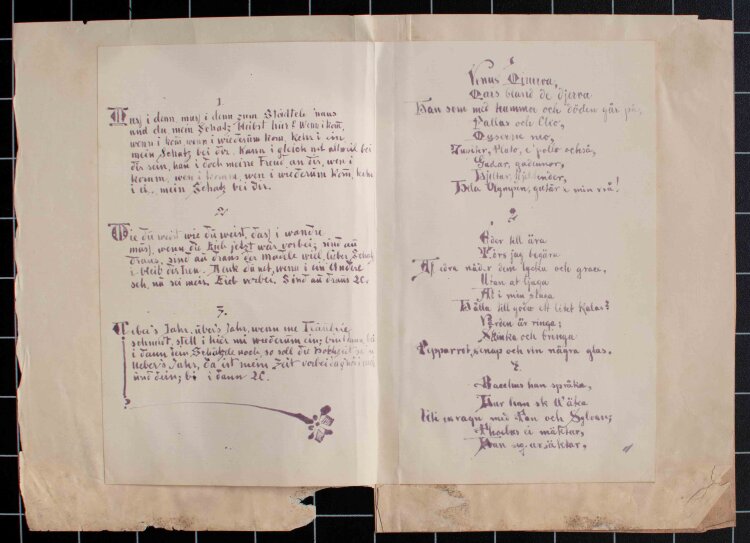 1.
Muß i denn, muß i denn zum Städtele 'naus
und du mein Schatz bleibst hier? Wenn i kom̄,
wenn i kom̄, wenn i wiederum kom̄, kehr i ein
mein Schatz bei dir. Kann i gleich net allweil bei
dir sein, han i doch meine Freud an dir, wen i
komm, wen i komm, wen i wiederum kom̄, kehr
i ei.. mein Schatz bei dir.
2.
Wie du weist wie du weist, daß i wandre
muß, wenn die Lieb jetzt wär vorbei; sind au
draus, sind au draus der Mädele viel, lieber Schatz
i bleib dir treu. Denk du net, wenn i ein Andre
seh, no sei mein Lieb vorbei. Sind au draus 2C.
3.
Ueber's Jahr, über's Jahr, wenn me Träubele
schneidt, stell i hier mi wiederum ein; bin i dann, bin
i dann dein Schätzele noch, so soll die Hochzeit sein
Ueber's Jahr, da ist mein Zeit vorbei da
und dein; bi i dann 2C.
Venus Minerva,
Mars bland de
Han som med hammer och döden går på,
Pallas och Clio,
Muserne nio,
Jupiter, Pluto, också,
Gudar, gudinnor,
Hjeltar, hjeltinnor,
Hela Olympen, gutår i min vrå!
2
Eder till ära
Törs jag begära
Af edra nåder den lycka och graca,
Utan at ljuga
At i min stuga
Hålla till godo ett litet kalas?
Bordn är ringa;
Skinka och bringa
Pepparrot, senap och vin några glas.
3.
Bacchus han språka,
Hur han sk åka
Uti en vagn med Pan och Sylvan;
Phoebus ei mäktar,
Han sig ursäktar,